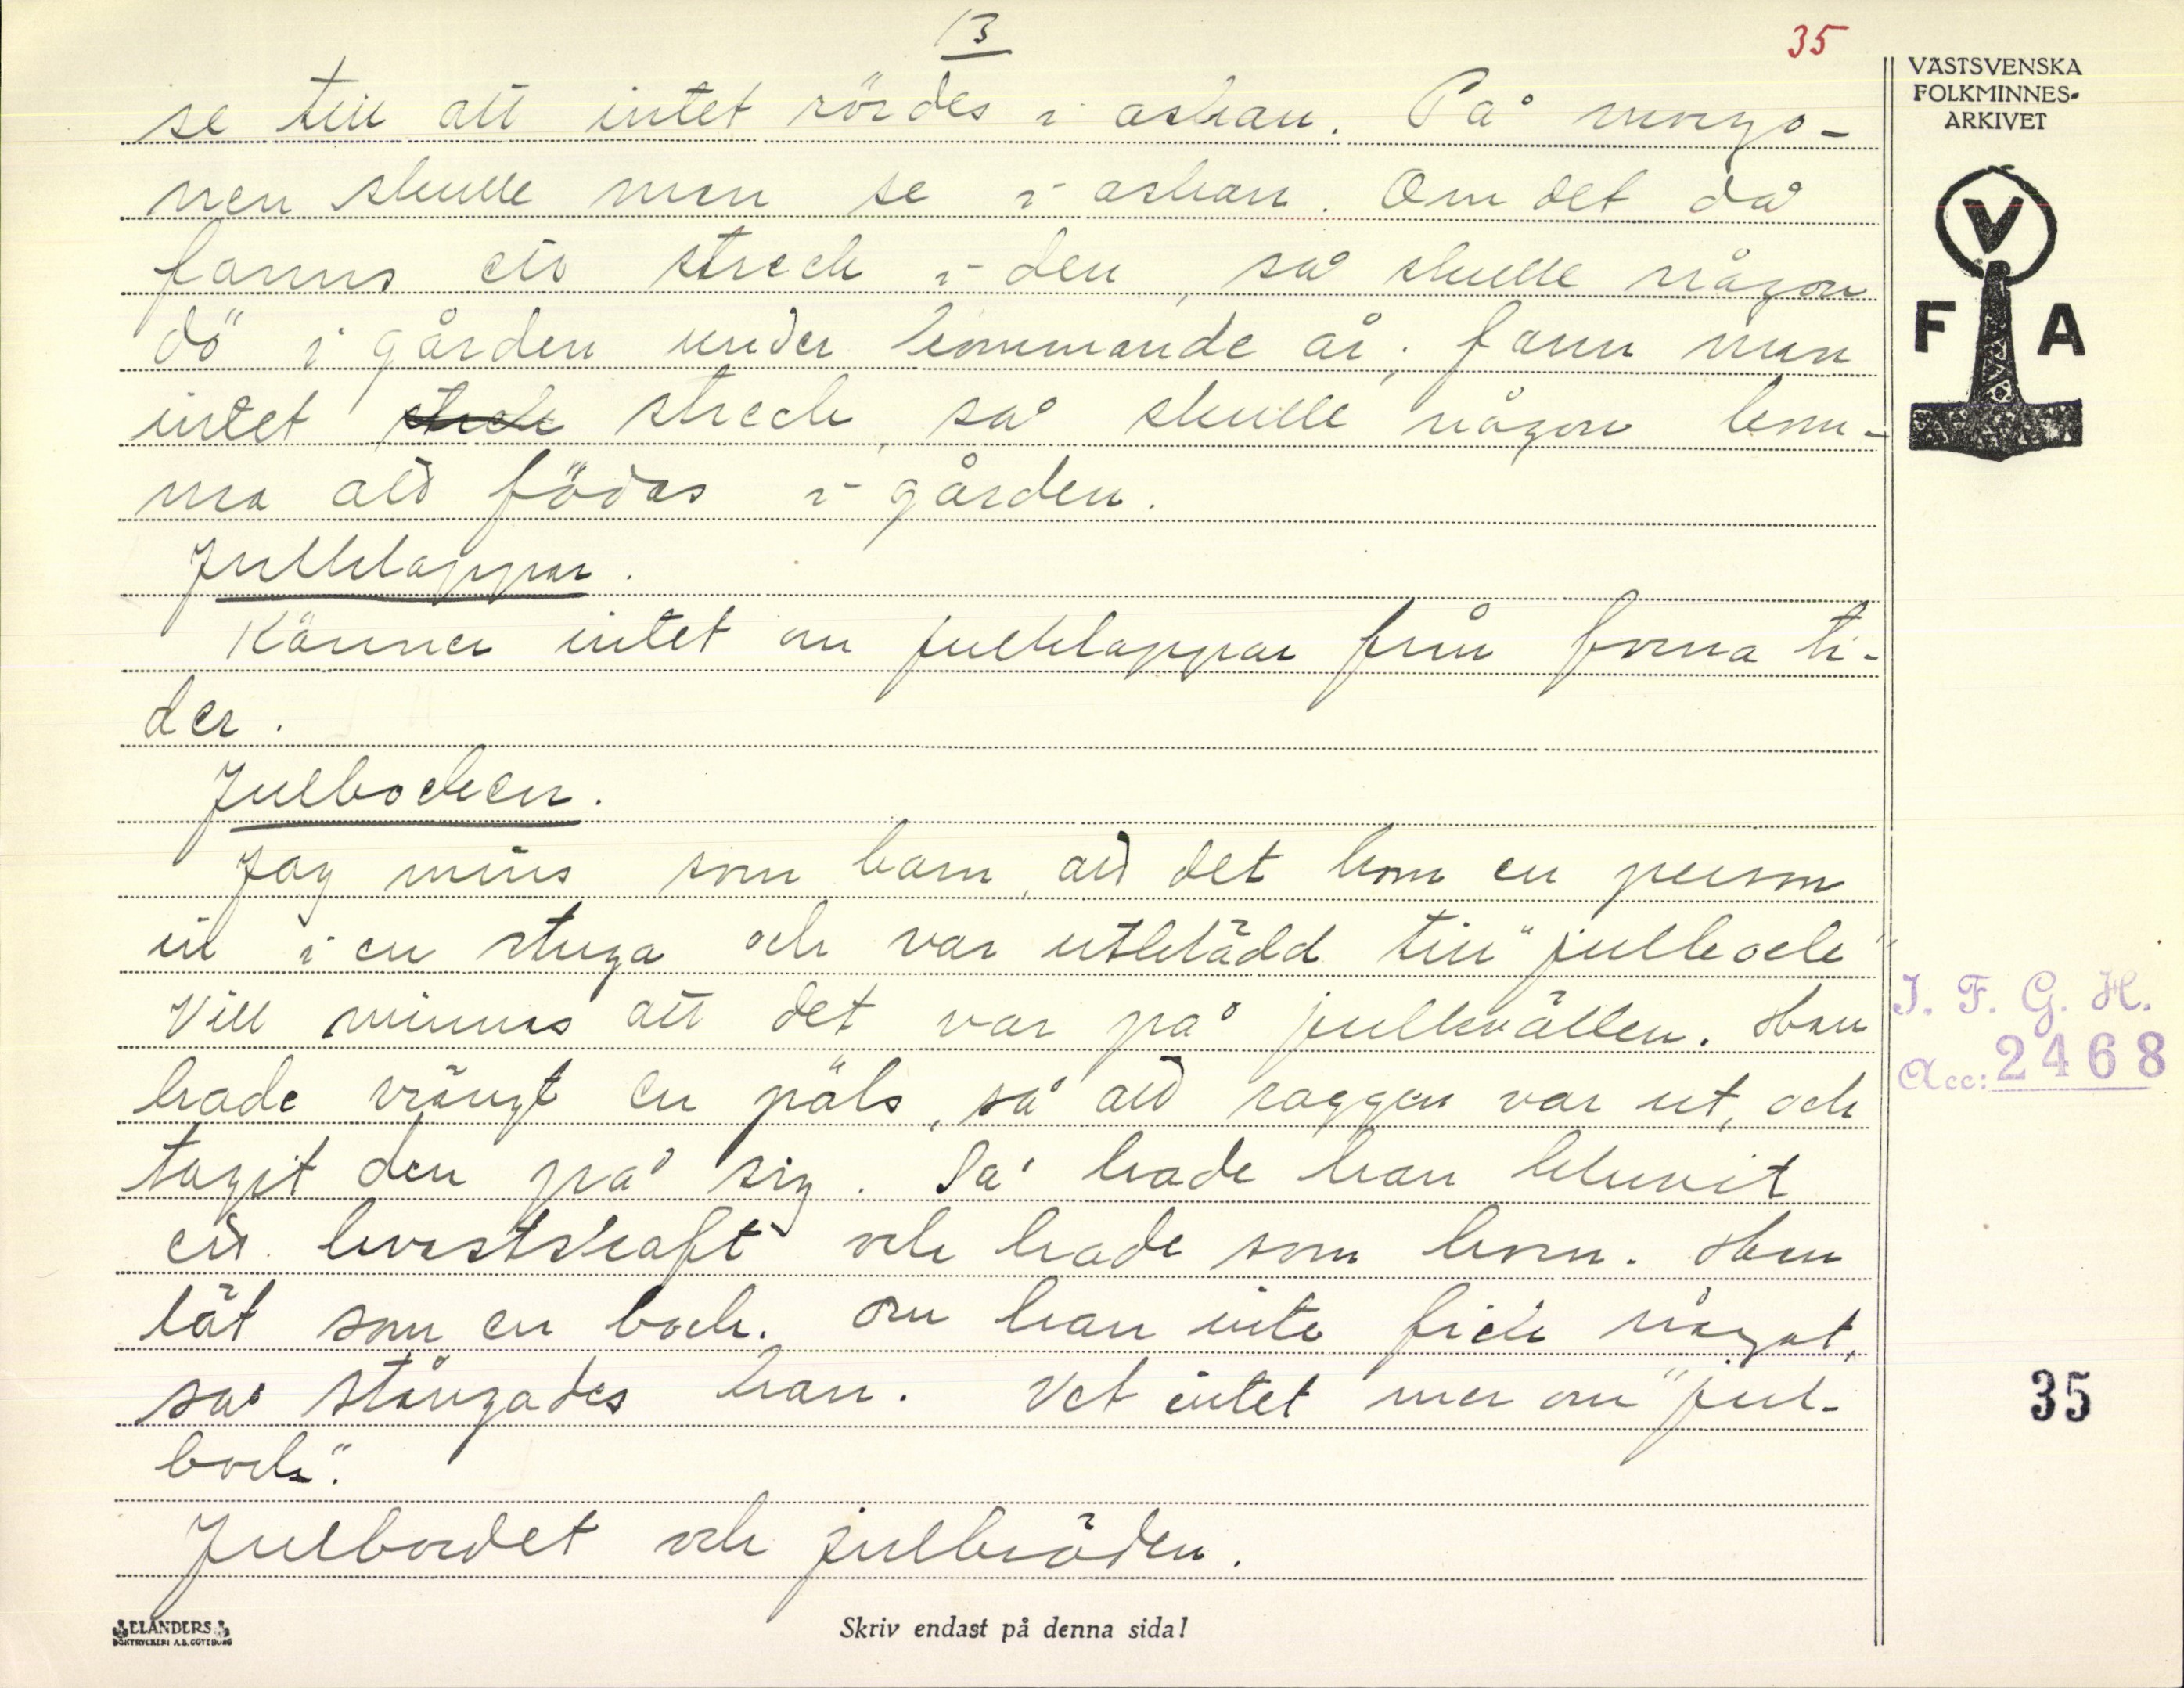 13
35
se till att intet rördes i askan. På morgo-
nen skulle man se i askan. Om det då
fanns ett streck i den, så skulle någon
dö i gården under kommande år; fann man
intet streck, så skulle någon kom-
ma att födas i gården.
Julklappar.
Känner intet om julklappar från forna ti-
der.
Julbocken.
Jag minns som barn, att det kom en person
in i en stuga och var utklädd till "julbock"
Vill minnas att det var på julkvällen. Han
hade vrängt en päls, så att raggen var ut, och
tagit den på sig. Så hade han kluvit
ett kvastskaft och hade som horn. Han
lät som en bock. Om han inte fick något,
så stångades han. Vet intet mer om "jul-
bock".
Julbordet och julbröden.
ELANDERS
BOKTRYCKERI A.B. GÖTEBORG
Skriv endast på denna sida!
VÄSTSVENSKA
FOLKMINNES-
ARKIVET
V
F A
I. F. G. H.
Acc: 2468
35